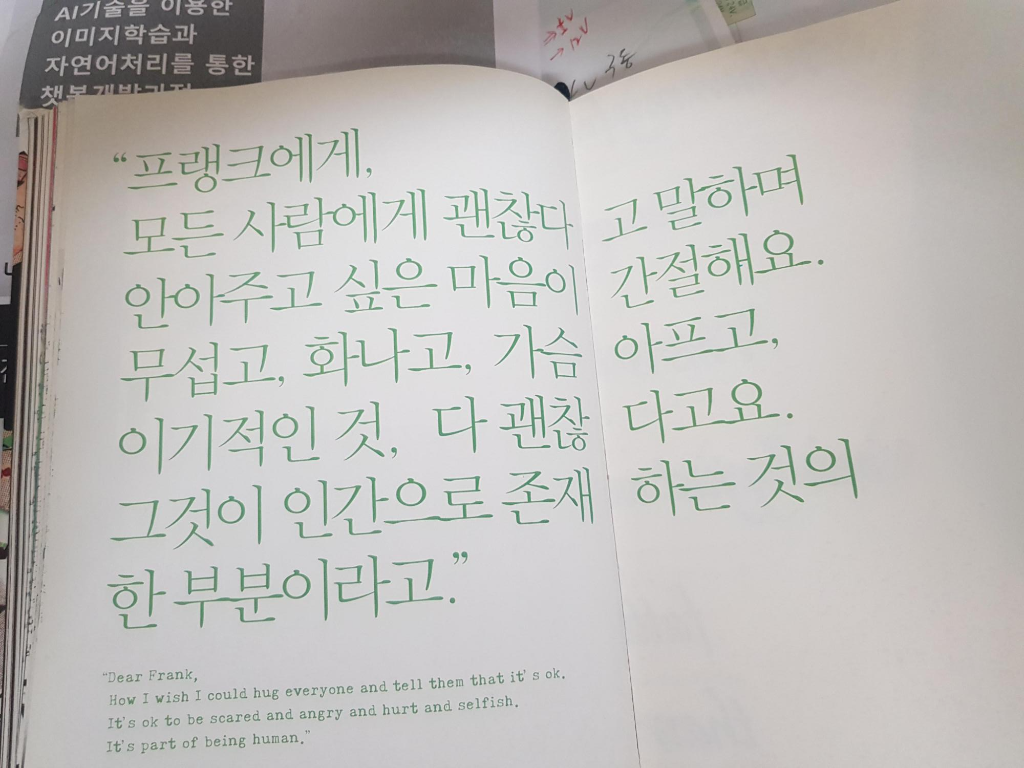 AI기술을 이용한
이미지학습과
자연어처리를 통한
챗봇개발과정
→5V
→12V
구동
“프랭크에게,
모든 사람에게 괜찮다고 말하며
안아주고 싶은 마음이 간절해요.
무섭고, 화나고, 가슴 아프고,
이기적인 것, 다 괜찮다고요.
그것이 인간으로 존재하는 것의
한 부분이라고.”
“Dear Frank,
How I wish I could hug everyone and tell them that it's ok.
It's ok to be scared and angry and hurt and selfish.
It's part of being human.”